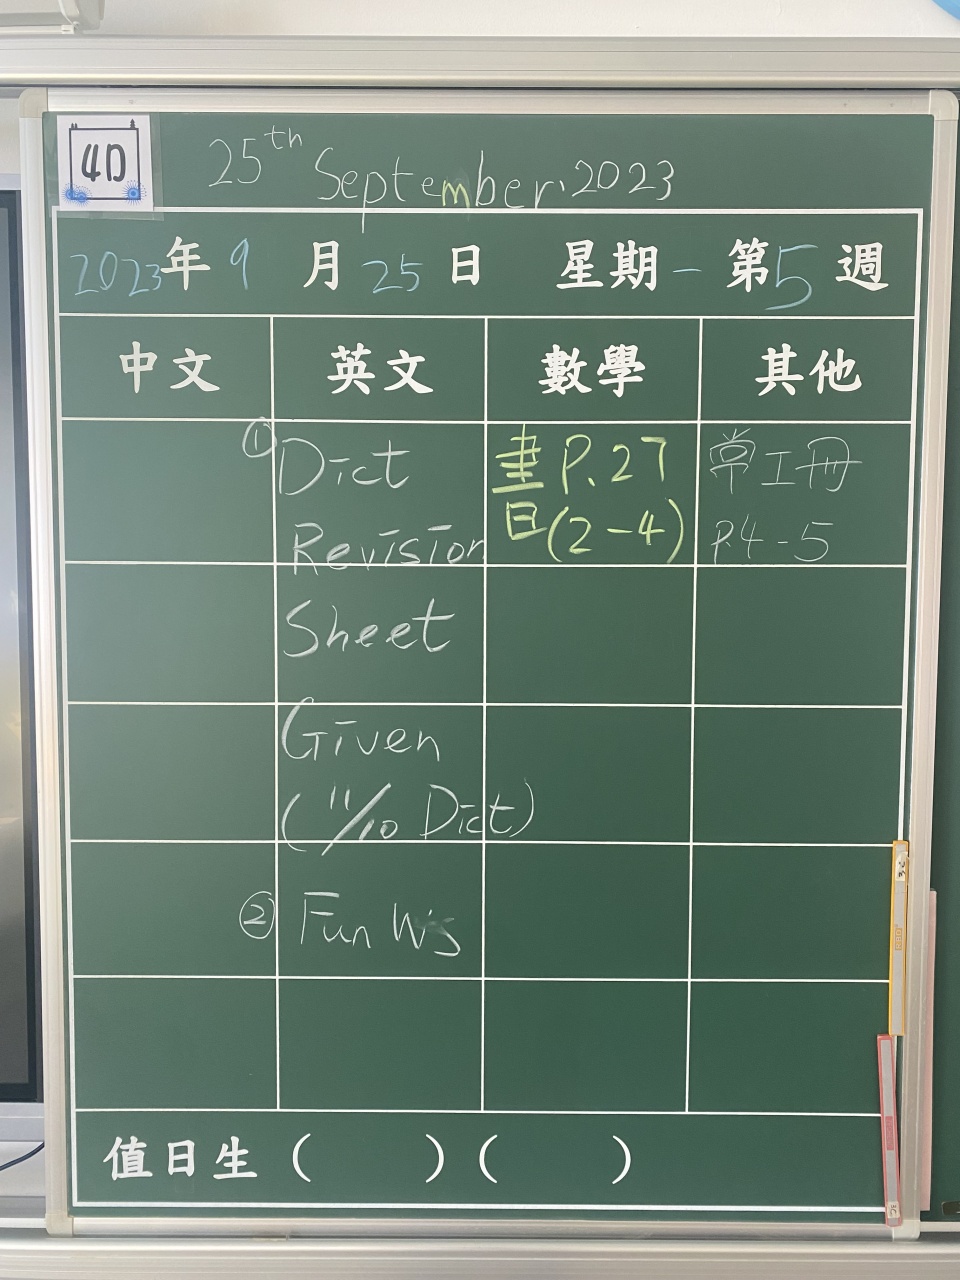 4D
25th September 2023
2023年9月25日 星期一 第5週
中文 英文 數學 其他
① Dict
Revision
Sheet
Given
(11/10 Dict)
② Fun W's
書P.27
(2-4)
常工冊
P.4-5
值日生 ( ) ( )